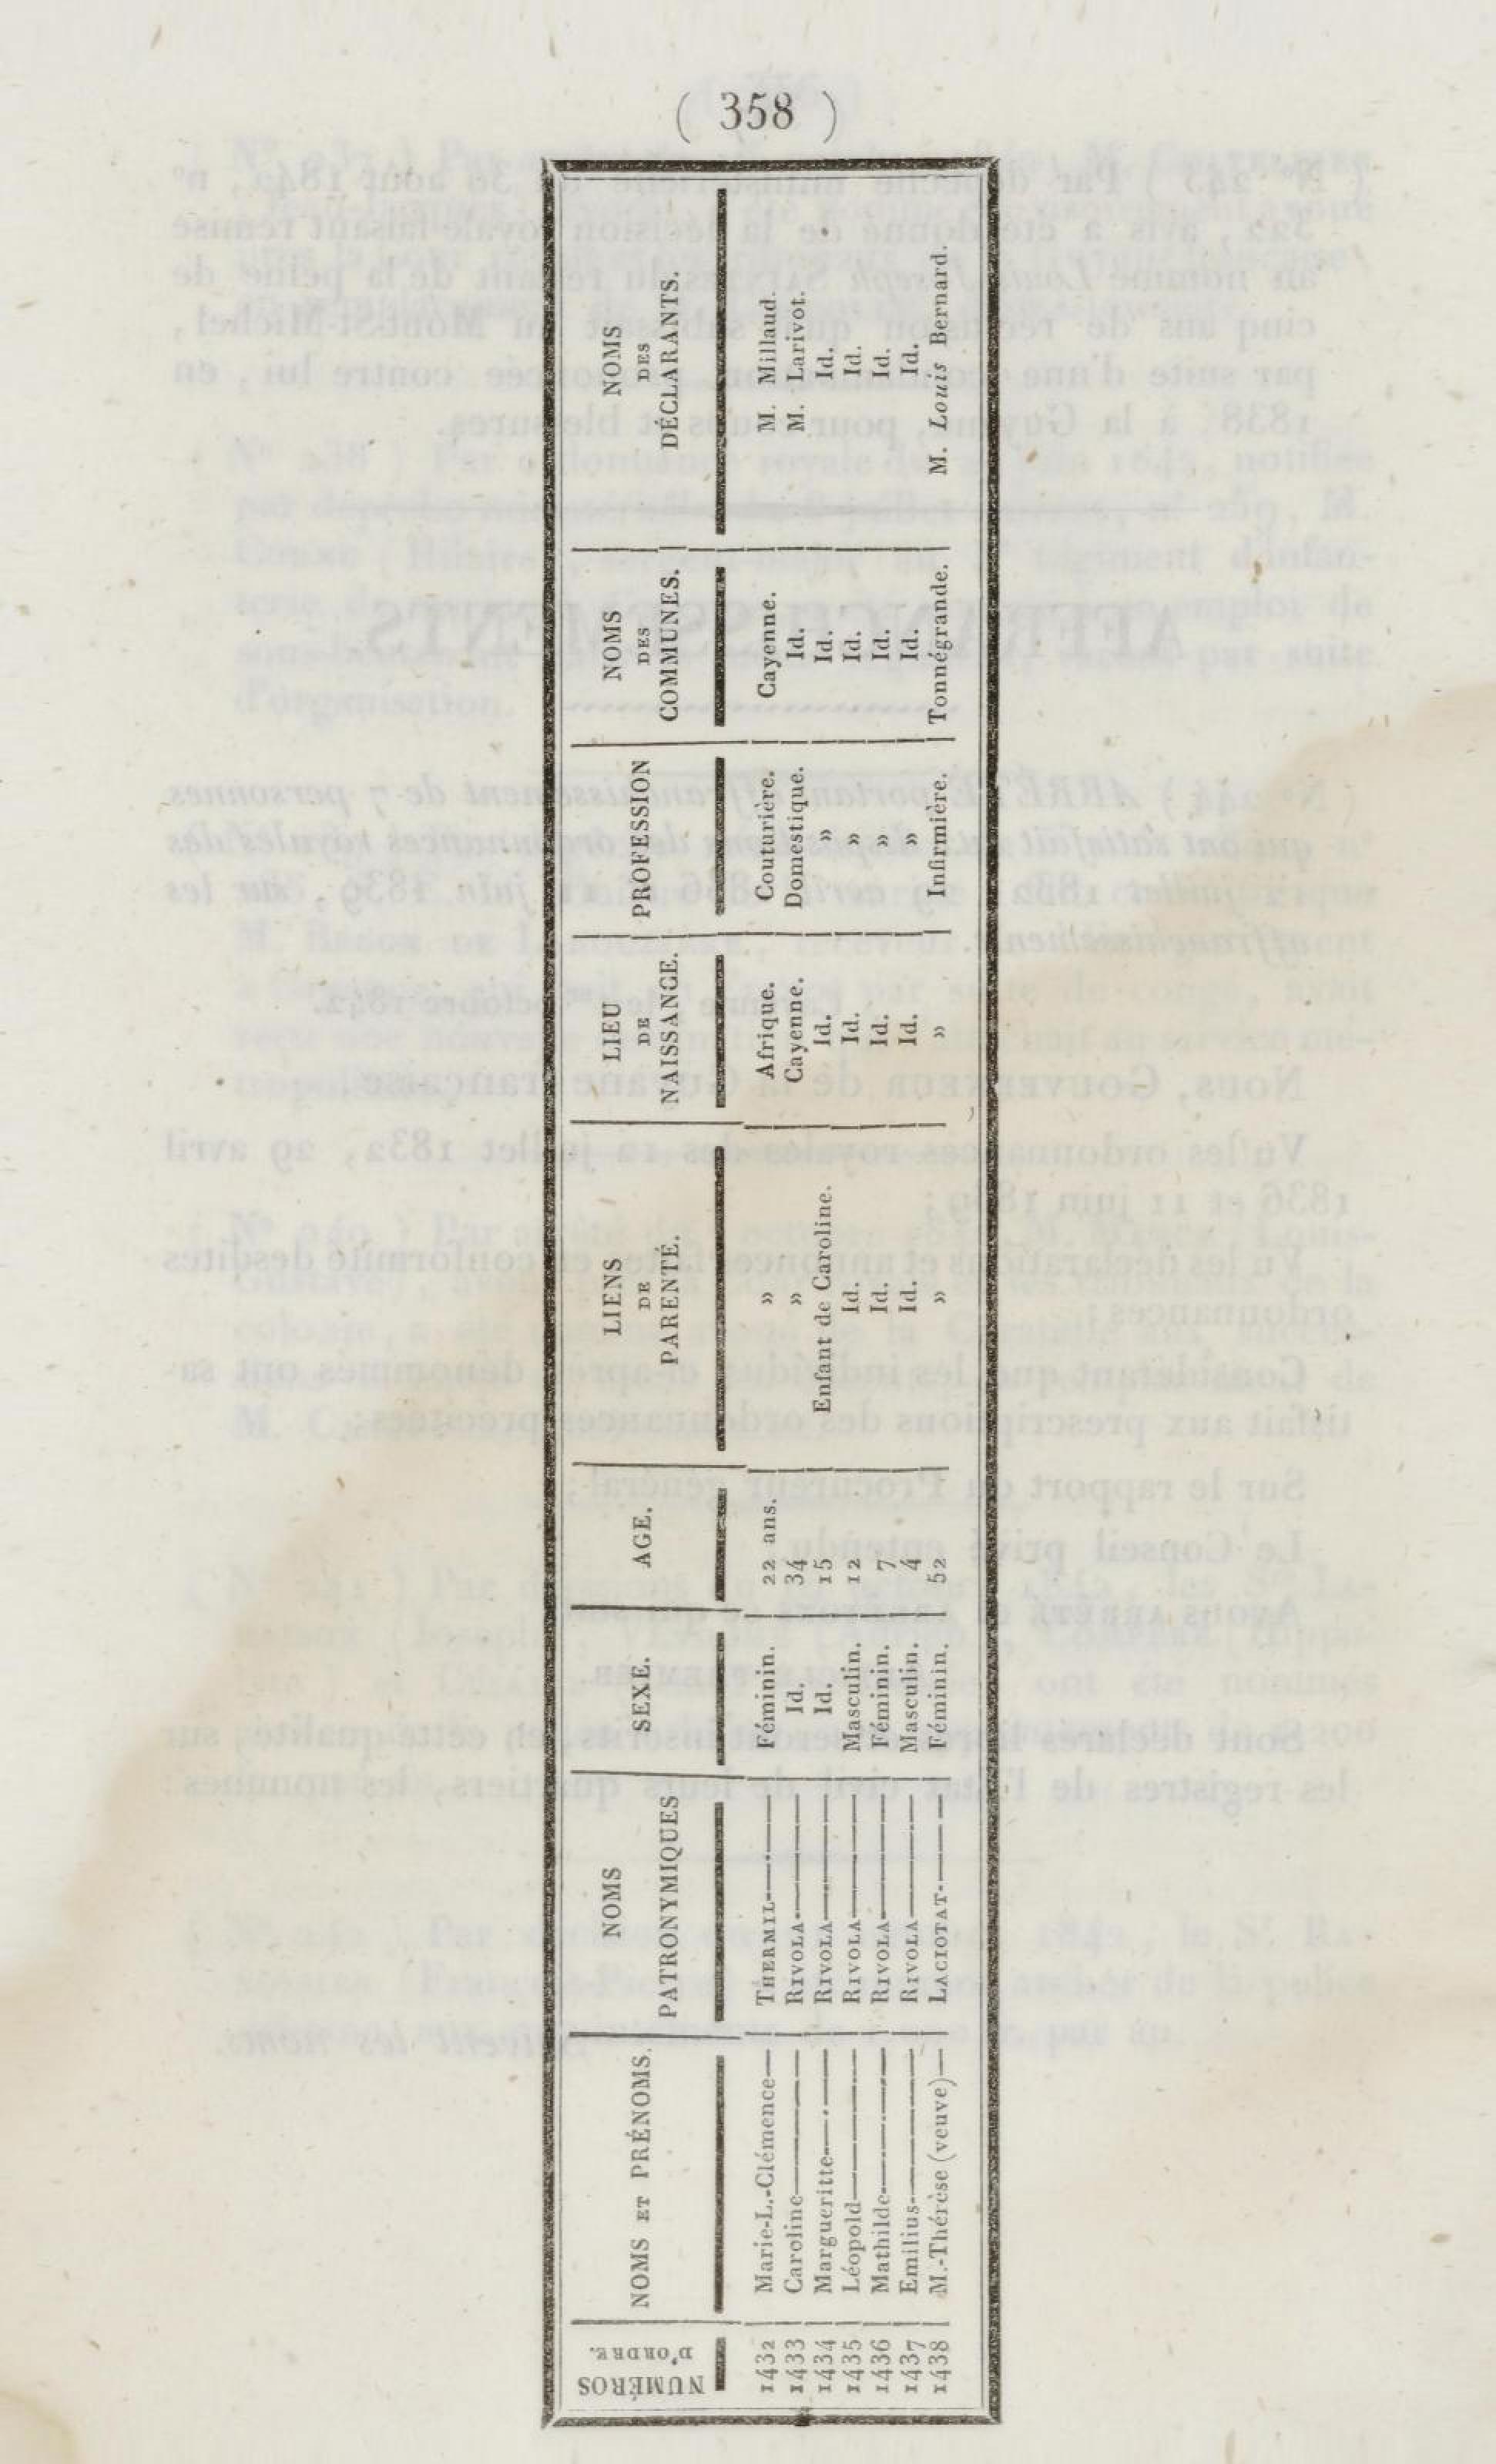 ( 358 )
NUMÉROS D'ORDRE.
NOMS ET PRÉNOMS.
NOMS PATRONYMIQUES
SEXE.
AGE.
LIENS DE PARENTÉ.
LIEU DE NAISSANCE.
PROFESSION
NOMS DES COMMUNES.
NOMS DES DÉCLARANTS.
1432 Marie-L.-Clémence THERMIL Féminin. 22 ans. » Afrique. Couturière. Cayenne. M. Millaud.
1433 Caroline RIVOLA Id. 34 » Cayenne. Domestique. Id. M. Larivot.
1434 Margueritte RIVOLA Id. 15 Enfant de Caroline. Id. » Id. Id.
1435 Léopold RIVOLA Masculin. 12 Id. Id. » Id. Id.
1436 Mathilde RIVOLA Féminin. 7 Id. Id. » Id. Id.
1437 Emilius RIVOLA Masculin. 4 Id. Id. » Id. Id.
1438 M.-Thérèse (veuve) LACIOTAT Féminin. 52 » » Infirmière. Tonnégrande. M. Louis Bernard.